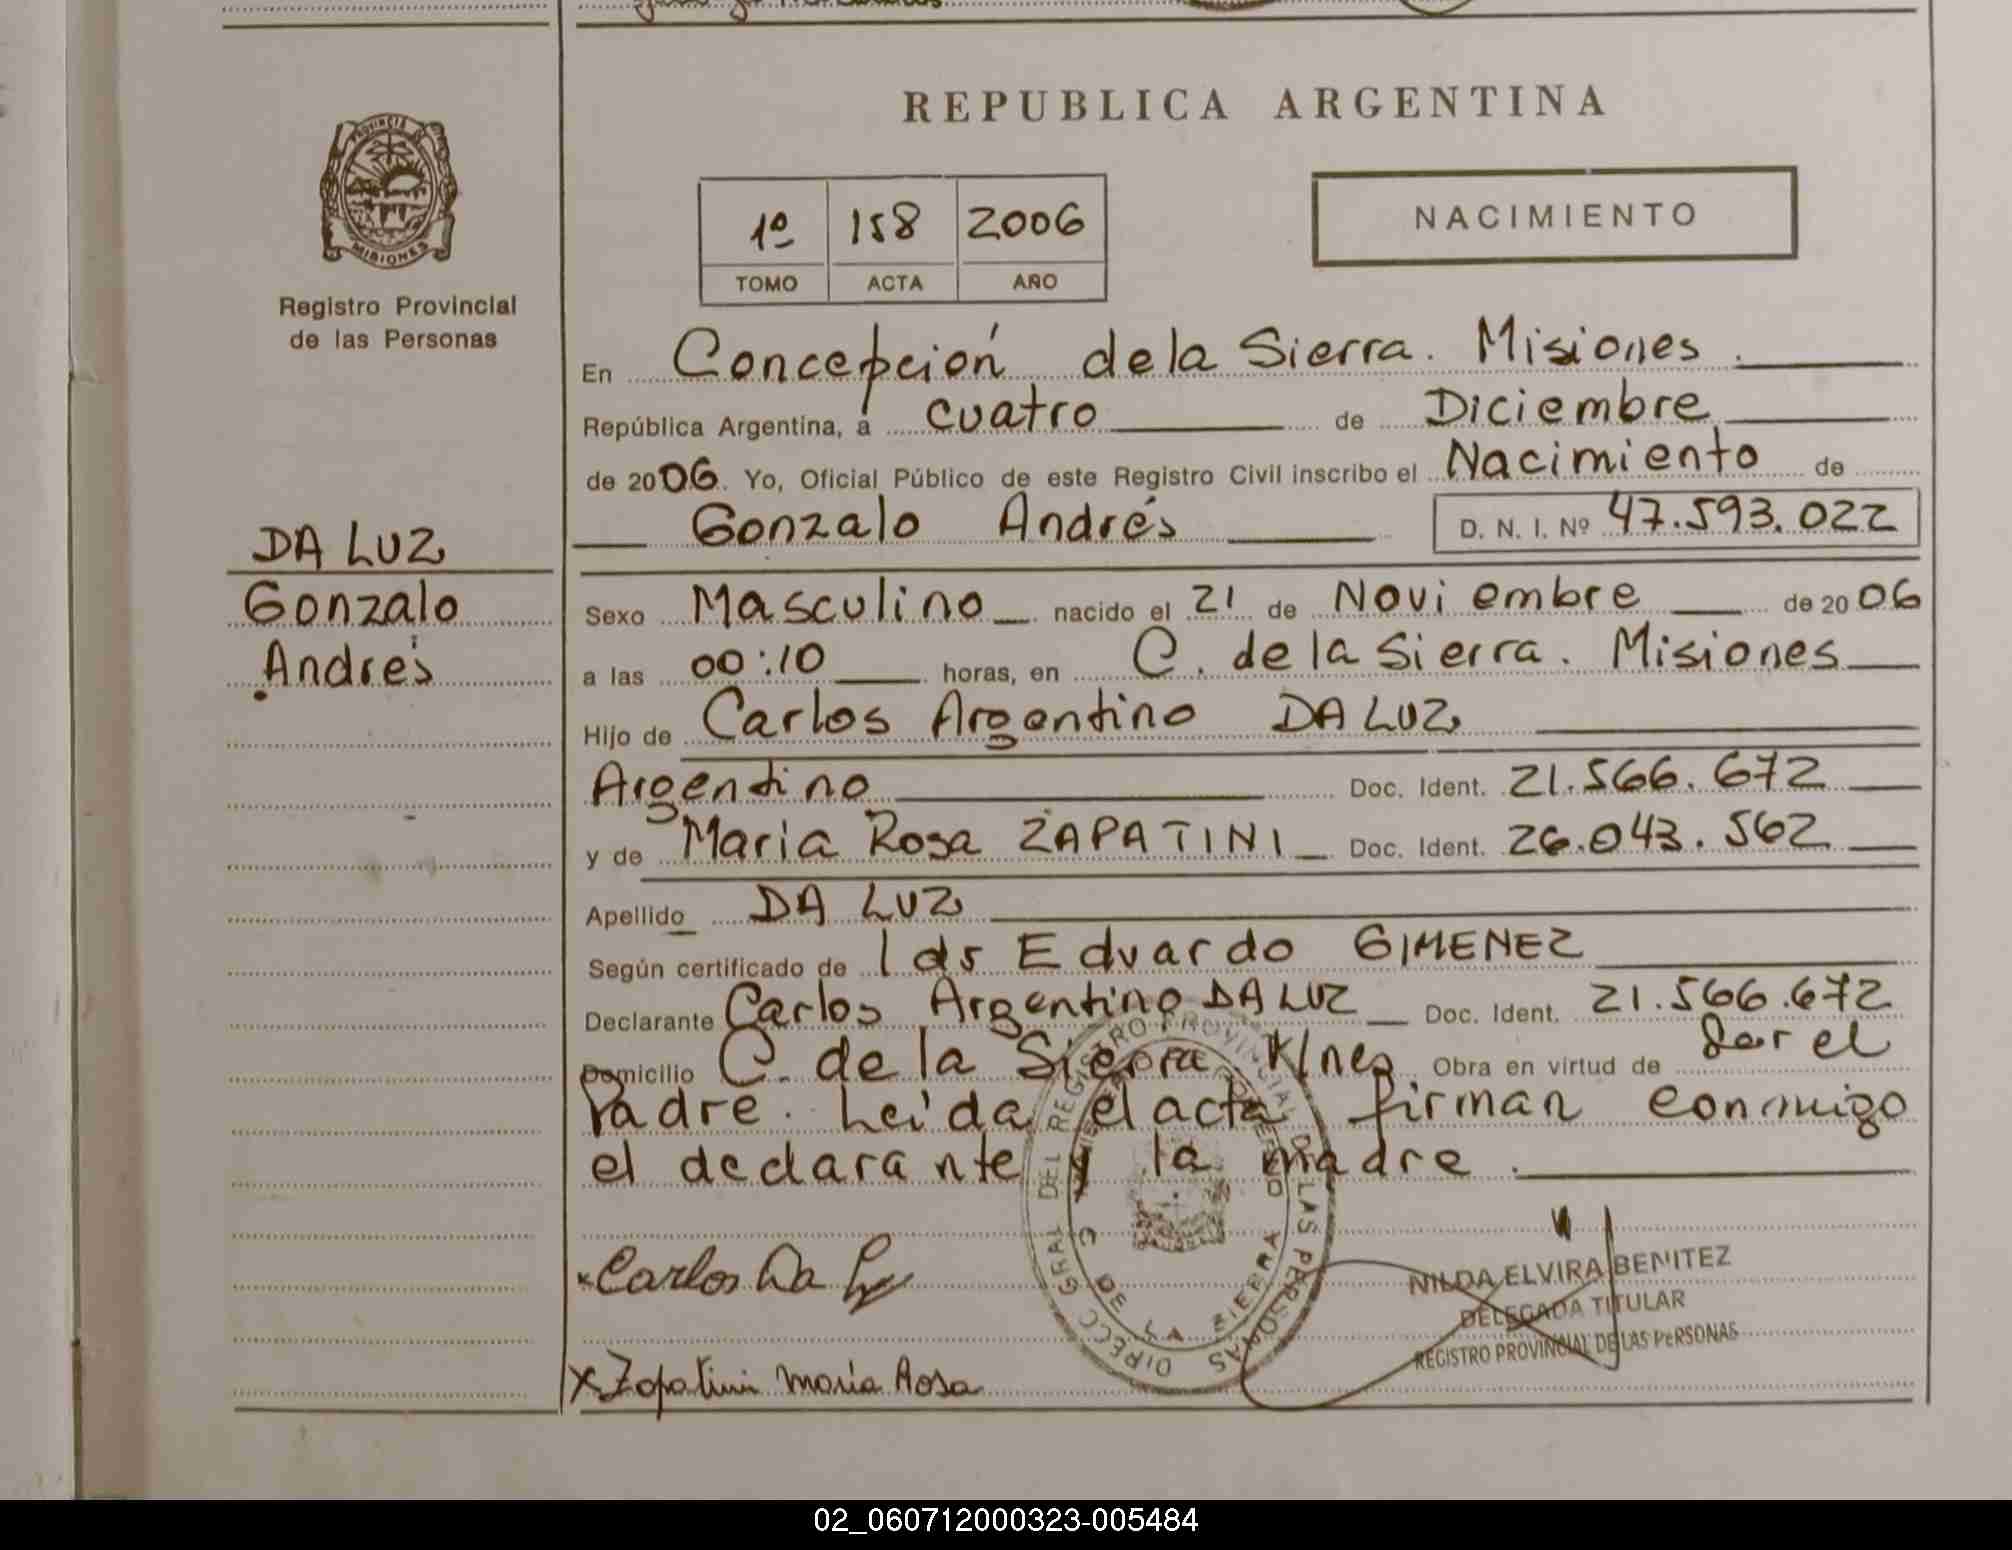 REPUBLICA ARGENTINA
PROVINCIA DE
MISIONES
Registro Provincial
de las Personas
1º 158 2006
TOMO ACTA AÑO
NACIMIENTO
En Concepción de la Sierra. Misiones.
República Argentina, a cuatro de Diciembre
de 2006. Yo, Oficial Público de este Registro Civil inscribo el Nacimiento de
Gonzalo Andrés D. N. I. Nº 47.593.022
DA LUZ
Gonzalo
Andrés
Sexo Masculino nacido el 21 de Noviembre de 2006
a las 00:10 horas, en C. de la Sierra. Misiones
Hijo de Carlos Argentino DA LUZ
Argentino Doc. Ident. 21.566.672
y de Maria Rosa ZAPATINI Doc. Ident. 26.043.562
Apellido DA LUZ
Según certificado de Eduardo GIMENEZ
Declarante Carlos Argentino DA LUZ Doc. Ident. 21.566.672
Domicilio C. de la Sierra Obra en virtud de Ser el
Padre. Leida el acta firman conmigo
el declarante y la madre.
Carlos Da
x Zapatini maría Rosa
DIRECC GRAL DEL REGISTRO PROVINCIAL DE LAS PERSONAS
DE LA SIERRA
NILDA ELVIRA BENITEZ
DELEGADA TITULAR
REGISTRO PROVINCIAL DE LAS PERSONAS
02_060712000323-005484